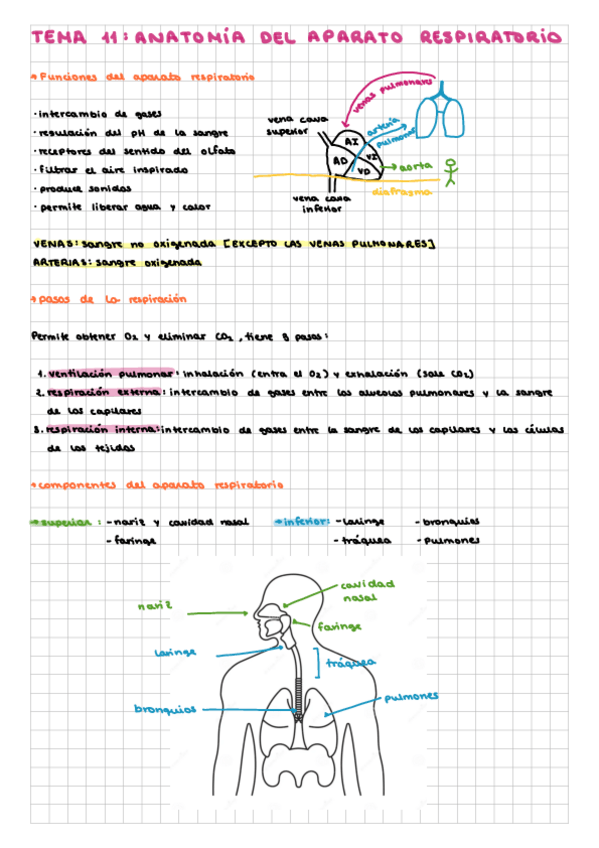 TEMA 11: ANATOMÍA DEL APARATO RESPIRATORIO
→ Funciones del aparato respiratorio
· intercambio de gases
· regulación del pH de la sangre
· receptores del sentido del olfato
· filtrar el aire inspirado
· produce sonidos
· permite liberar agua y calor
vena cava
superior
venas pulmonares
arteria
pulmonar
AI
AD
VI
VD
aorta
diafragma
vena cava
inferior
VENAS: sangre no oxigenada [EXCEPTO LAS VENAS PULMONARES]
ARTERIAS: sangre oxigenada
→ pasos de la respiración
Permite obtener O2 y eliminar CO2, tiene 3 pasos:
1. ventilación pulmonar: inhalación (entra el O2) y exhalación (sale CO2)
2. respiración externa: intercambio de gases entre los alveolos pulmonares y la sangre
de los capilares
3. respiración interna: intercambio de gases entre la sangre de los capilares y las células
de los tejidos
→ componentes del aparato respiratorio
→ superior: - nariz y cavidad nasal → inferior: - laringe - bronquios
- faringe - tráquea - pulmones
cavidad
nasal
nariz
faringe
laringe
tráquea
pulmones
bronquios